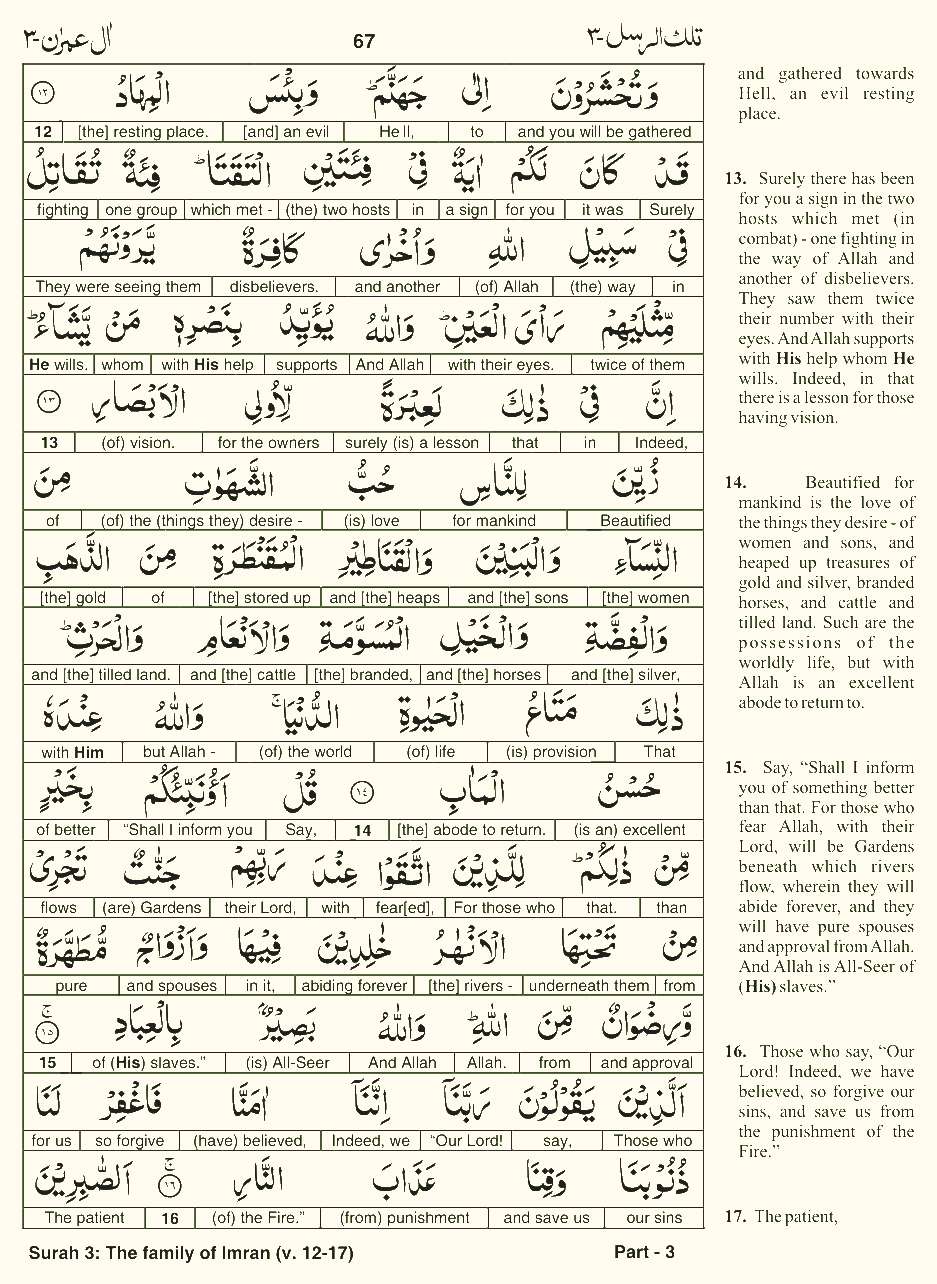 اٰل عمرٰن-٣ 67 تلك الرسل-٣
وَتُحْشَرُوْنَ اِلٰى جَهَنَّمَ ؕ وَبِئْسَ الْمِهَادُ ١٢
12 [the] resting place. [and] an evil Hell, to and you will be gathered
قَدْ كَانَ لَكُمْ اٰيَةٌ فِيْ فِئَتَيْنِ الْتَقَتَا ؕ فِئَةٌ تُقَاتِلُ
fighting one group which met - (the) two hosts in a sign for you it was Surely
فِيْ سَبِيْلِ اللّٰهِ وَاُخْرٰى كَافِرَةٌ يَّرَوْنَهُمْ
They were seeing them disbelievers. and another (of) Allah (the) way in
مِّثْلَيْهِمْ رَاْيَ الْعَيْنِ ؕ وَاللّٰهُ يُؤَيِّدُ بِنَصْرِهٖ مَنْ يَّشَآءُ ؕ
He wills. whom with His help supports And Allah with their eyes. twice of them
اِنَّ فِيْ ذٰلِكَ لَعِبْرَةً لِّاُولِي الْاَبْصَارِ ١٣
13 (of) vision. for the owners surely (is) a lesson that in Indeed,
زُيِّنَ لِلنَّاسِ حُبُّ الشَّهَوٰتِ مِنَ
of (of) the (things they) desire - (is) love for mankind Beautified
النِّسَآءِ وَالْبَنِيْنَ وَالْقَنَاطِيْرِ الْمُقَنْطَرَةِ مِنَ الذَّهَبِ
[the] gold of [the] stored up and [the] heaps and [the] sons [the] women
وَالْفِضَّةِ وَالْخَيْلِ الْمُسَوَّمَةِ وَالْاَنْعَامِ وَالْحَرْثِ ؕ
and [the] tilled land. and [the] cattle [the] branded, and [the] horses and [the] silver,
ذٰلِكَ مَتَاعُ الْحَيٰوةِ الدُّنْيَا ۚ وَاللّٰهُ عِنْدَهٗ
with Him but Allah - (of) the world (of) life (is) provision That
حُسْنُ الْمَاٰبِ ١٤ قُلْ اَؤُنَبِّئُكُمْ بِخَيْرٍ
of better “Shall I inform you Say, 14 [the] abode to return. (is an) excellent
مِّنْ ذٰلِكُمْ ؕ لِلَّذِيْنَ اتَّقَوْا عِنْدَ رَبِّهِمْ جَنّٰتٌ تَجْرِيْ
flows (are) Gardens their Lord, with fear[ed], For those who that. than
مِنْ تَحْتِهَا الْاَنْهٰرُ خٰلِدِيْنَ فِيْهَا وَاَزْوَاجٌ مُّطَهَّرَةٌ
pure and spouses in it, abiding forever [the] rivers - underneath them from
وَّرِضْوَانٌ مِّنَ اللّٰهِ ؕ وَاللّٰهُ بَصِيْرٌۢ بِالْعِبَادِ ۚ ١٥
15 of (His) slaves.” (is) All-Seer And Allah Allah. from and approval
اَلَّذِيْنَ يَقُوْلُوْنَ رَبَّنَآ اِنَّنَآ اٰمَنَّا فَاغْفِرْ لَنَا
for us so forgive (have) believed, Indeed, we “Our Lord! say, Those who
ذُنُوْبَنَا وَقِنَا عَذَابَ النَّارِ ۚ ١٦ اَلصّٰبِرِيْنَ
The patient 16 (of) the Fire.” (from) punishment and save us our sins
and gathered towards
Hell, an evil resting
place.
13. Surely there has been
for you a sign in the two
hosts which met (in
combat) - one fighting in
the way of Allah and
another of disbelievers.
They saw them twice
their number with their
eyes. And Allah supports
with His help whom He
wills. Indeed, in that
there is a lesson for those
having vision.
14. Beautified for
mankind is the love of
the things they desire - of
women and sons, and
heaped up treasures of
gold and silver, branded
horses, and cattle and
tilled land. Such are the
possessions of the
worldly life, but with
Allah is an excellent
abode to return to.
15. Say, “Shall I inform
you of something better
than that. For those who
fear Allah, with their
Lord, will be Gardens
beneath which rivers
flow, wherein they will
abide forever, and they
will have pure spouses
and approval from Allah.
And Allah is All-Seer of
(His) slaves.”
16. Those who say, “Our
Lord! Indeed, we have
believed, so forgive our
sins, and save us from
the punishment of the
Fire.”
17. The patient,
Surah 3: The family of Imran (v. 12-17) Part - 3